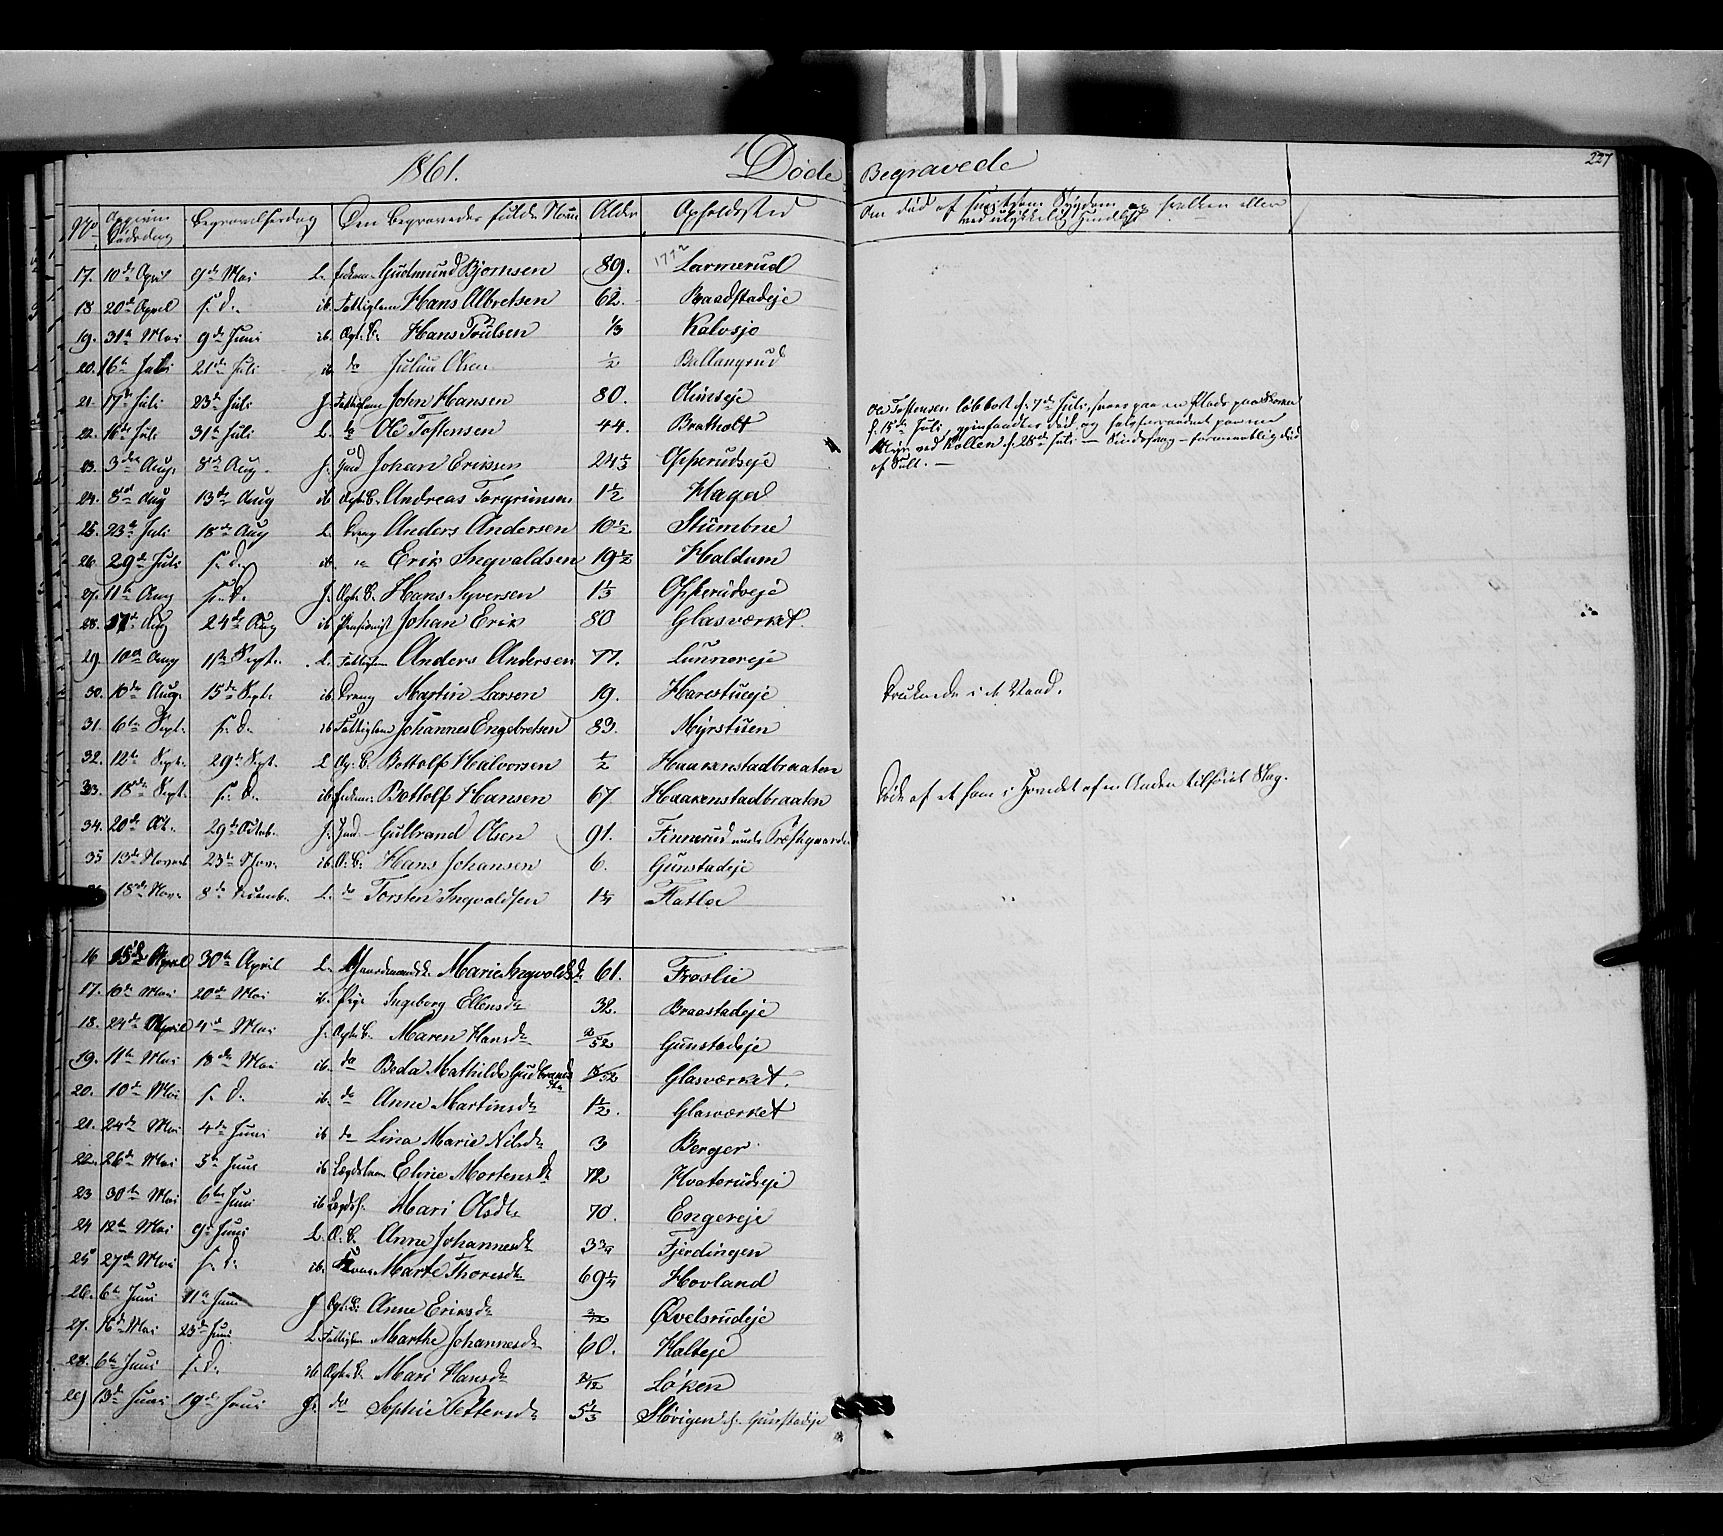 1861. Døde Begravede 227
No Begravelsesdag Den Begravedes fulde Navn Alder Opholdssted Om død af smitsom Sygdom og hvilken eller
ved ulykkelig Hændelse
17. 10de April 9de Mai L. Gudmund Bjørnsen 89. 1772 Larmerud
18 20de April s. d. ib. Fattiglem Hans Albretsen 62. Braastadeje
19. 31te Mai 9de Juni ib. Hans Poulsen 1/3 Kalvsjø
20. 16de Juli 21de Juli ib do Julius Olsen 1/2 Ballangrud
21. 17de Juli 23de Juli J. Fattiglem John Hansen 80.
22. 31te Juli L. do Ole Tostensen 44. Bratholt
Ole Tostensen løb bort d. 7de Juli, paa en Plads
d. 15de Juli, gjenfandtes død og paa en
Myr ved Kollen d. 28de Juli — Sindssvag — formentlig død
af Sult. —
23. 3die Aug. 8de Aug. J. Johan Eriksen 24 1/3 Opperudseje
24. 8de Aug 13de Aug ib Andreas Torgrimsen 1 1/2 Haga
25. 23de Juli 18de Aug L. Dreng Anders Andersen 10 1/2 Stumbne
26. 29de Juli s. d. ib " Erik Ingvaldsen 19 1/2 Haldum
27. 11te Aug s. d. J. Hans Syversen 1 1/3 Opperudeje
28. 17de Aug 24de Aug ib Pensionist Johan Erik 80 Glasværket.
29 10de Aug 1ste Sept. L. Fattiglem Anders Andersen 77. Lunnereje
30. 10de Aug. 15de Sept. ib. Dreng Martin Larsen 19. Harestueje Druknede i et Vand.
31. 6te Sept. s. d. ib Fattiglem Johannes Engebretsen 83. Myrstuen
32. 12te Sept. 29de Sept. L Bottolf Halvorsen 1/2 Haakenstadbraaten
33. 18de Sept. s. d. ib Bottolf Hansen 67 Haakenstadbraaten Døde af et ham i Hovedet af en Anden tilføiet Slag.
34. 20de Oct. 29de Octob. J. Gulbrand Olsen 91. Finnerud under Præstegaarden
35 13de Novemb 23de Nov. ib. Hans Johansen 6. Gunstadeje
18de Nov. 8de Decemb. L. do Torsten Ingvaldsen 1 1/4 Flatla
16 April 30te April L. Gaardmandsk. Marie Ingvoldsd. 61. Froslie
17. 10de Mai 20de Mai ib. Pige Ingeborg Ellensdtr 32. Braastadeje
18. 24de April 4de Mai J. Maren Hansdtr /52 Gunstadeje
19. 11te Mai 18de Mai ib. do Beda Mathilde Gudbrandsdtr /52 Glasværket.
20. 10de Mai s. d. ib. do Anne Martinsdtr 1 1/2. Glasværket
21. 24de Mai 4de Juni ib do Lina Marie Nilsdtr 3 Berger
22. 26de Mai 5te Juni ib Lægdslem Eline Mortensdtr 72 Kvaterudseje
23 30te Mai 6te Juni ib Mari Olsdtr 70. Engereje
24 12te Mai 9de Juni L. Anne Johannesdtr 3 3/4 Fjerdingen
25 27de Mai s. d. ib. Marte Thoresdtr 69 1/4 Hovland
26. 6te Juni 11te Juni J Anne Eriksdtr Øvelsrudeje
27. 16de Mai 23de Juni L Fattiglem Marthe Johannesdtr 60. Kalteje
28. 6te Juni s. d. ib Mari Hansdtr /12 Løken
29 13de Juni 19de Juni J. do Sophie Pettersdtr 5 1/3 Støvigen Gunstadeje